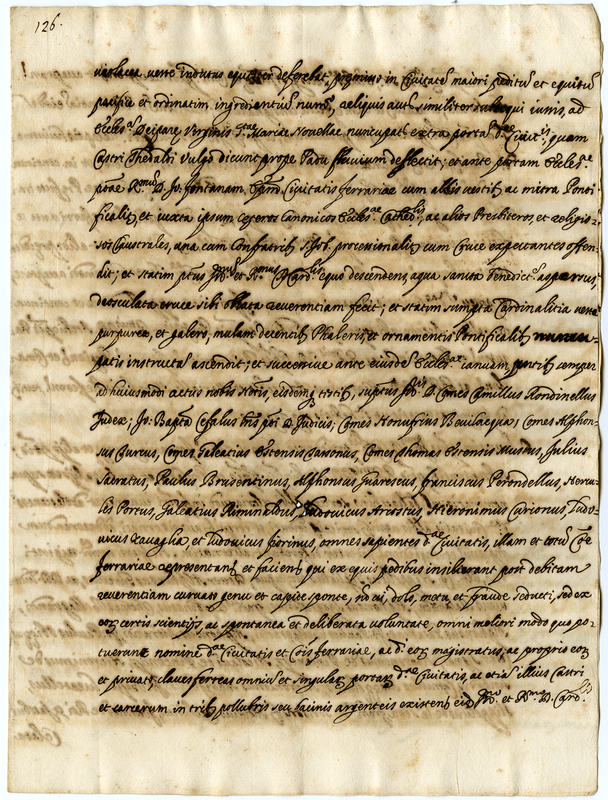 126.
violacea veste indutus equiter deferebat, primius in Civitatē maiori peditū et equitū
pacifice et ordinatim ingredientiū numō, reliquis autē similiter subsequi iussis, ad
Eccles.ā Deiparę Virginis S.tae Mariae Novellae nuncupat extra portā d.ae Civit.is, quam
Castri Thedaldi vulgo dicunt prope Padū fluvium deflectit; et ante portam Eccles.ae
pōae R.mus D. Jo: fontanam, Epūm Civitatis ferrariae cum albis vestib, ac mitra Ponti-
ficalib, et iuxta ipsum cęteros Canonicos Eccles.ae Cathed.lis, ac alios Presbiteros, et religio-
sos Claustrales, una cum Confratrib, s. processionalit cum Cruce expectantes offen-
dit; et statim ptus Ill.mus et R.mus D. Card.lis equo descendens, aqua sancta benedict aspersus,
deosculata cruce sibi oblata reverentiam fecit; et statim sumpta Cardinalitia veste
purpurea, et galero, mulam decentib, Phaleris, et ornamentis Pontificalib nuncu-
patis instructā ascendit; et successive ante eiusdē Eccles.ae ianuam, pntib semper
ad huiusmodi actus nobis Notis, eisdemq testib, suptus Ill. D. Comes Camillus Rondinellus
Judex; Jo: Bapta Cefalus D. Judicis; Comes Honufrius Bevilaequa; Comes Alphon-
sus Turcus, Comes Galeatius Estensis Tassonus, Comes Thomas Estensis Mustus, Julius
Sadratus, Paulus Brusentinus, Alphonsus Guarescus, franciscus Perondellus, Hercu-
les Portus, Galeatius Riminaldus, Ludovicus Ariostus, Hieronimus Carionus, Ludo-
vicus Ravaglia, et Ludovicus fiorinus, omnes sapientes d.ae Civitatis, illam et totū Cōe
ferrariae representant, et facient, qui ex equis pedibus insilierant post debitam
reverentiam curvato genu et capide sponte, nō vi, dolo, metu et fraude seducti, sed ex
eoz certis scientijs, ac spontanea et deliberata voluntate, omni meliori modo quo po-
tuerunt nomine d.ae Civitatis et Cōis ferrariae, ac d: eoz magistratus, ac proprio eoz
et privato, claves ferreas omniū et singulaz portaz d.ae Civitatis, ac etiā illius Castri
et carcerum in trib pollubris seu bacinis argenteis existent eid Ill.mo et R.mo D. Card.li